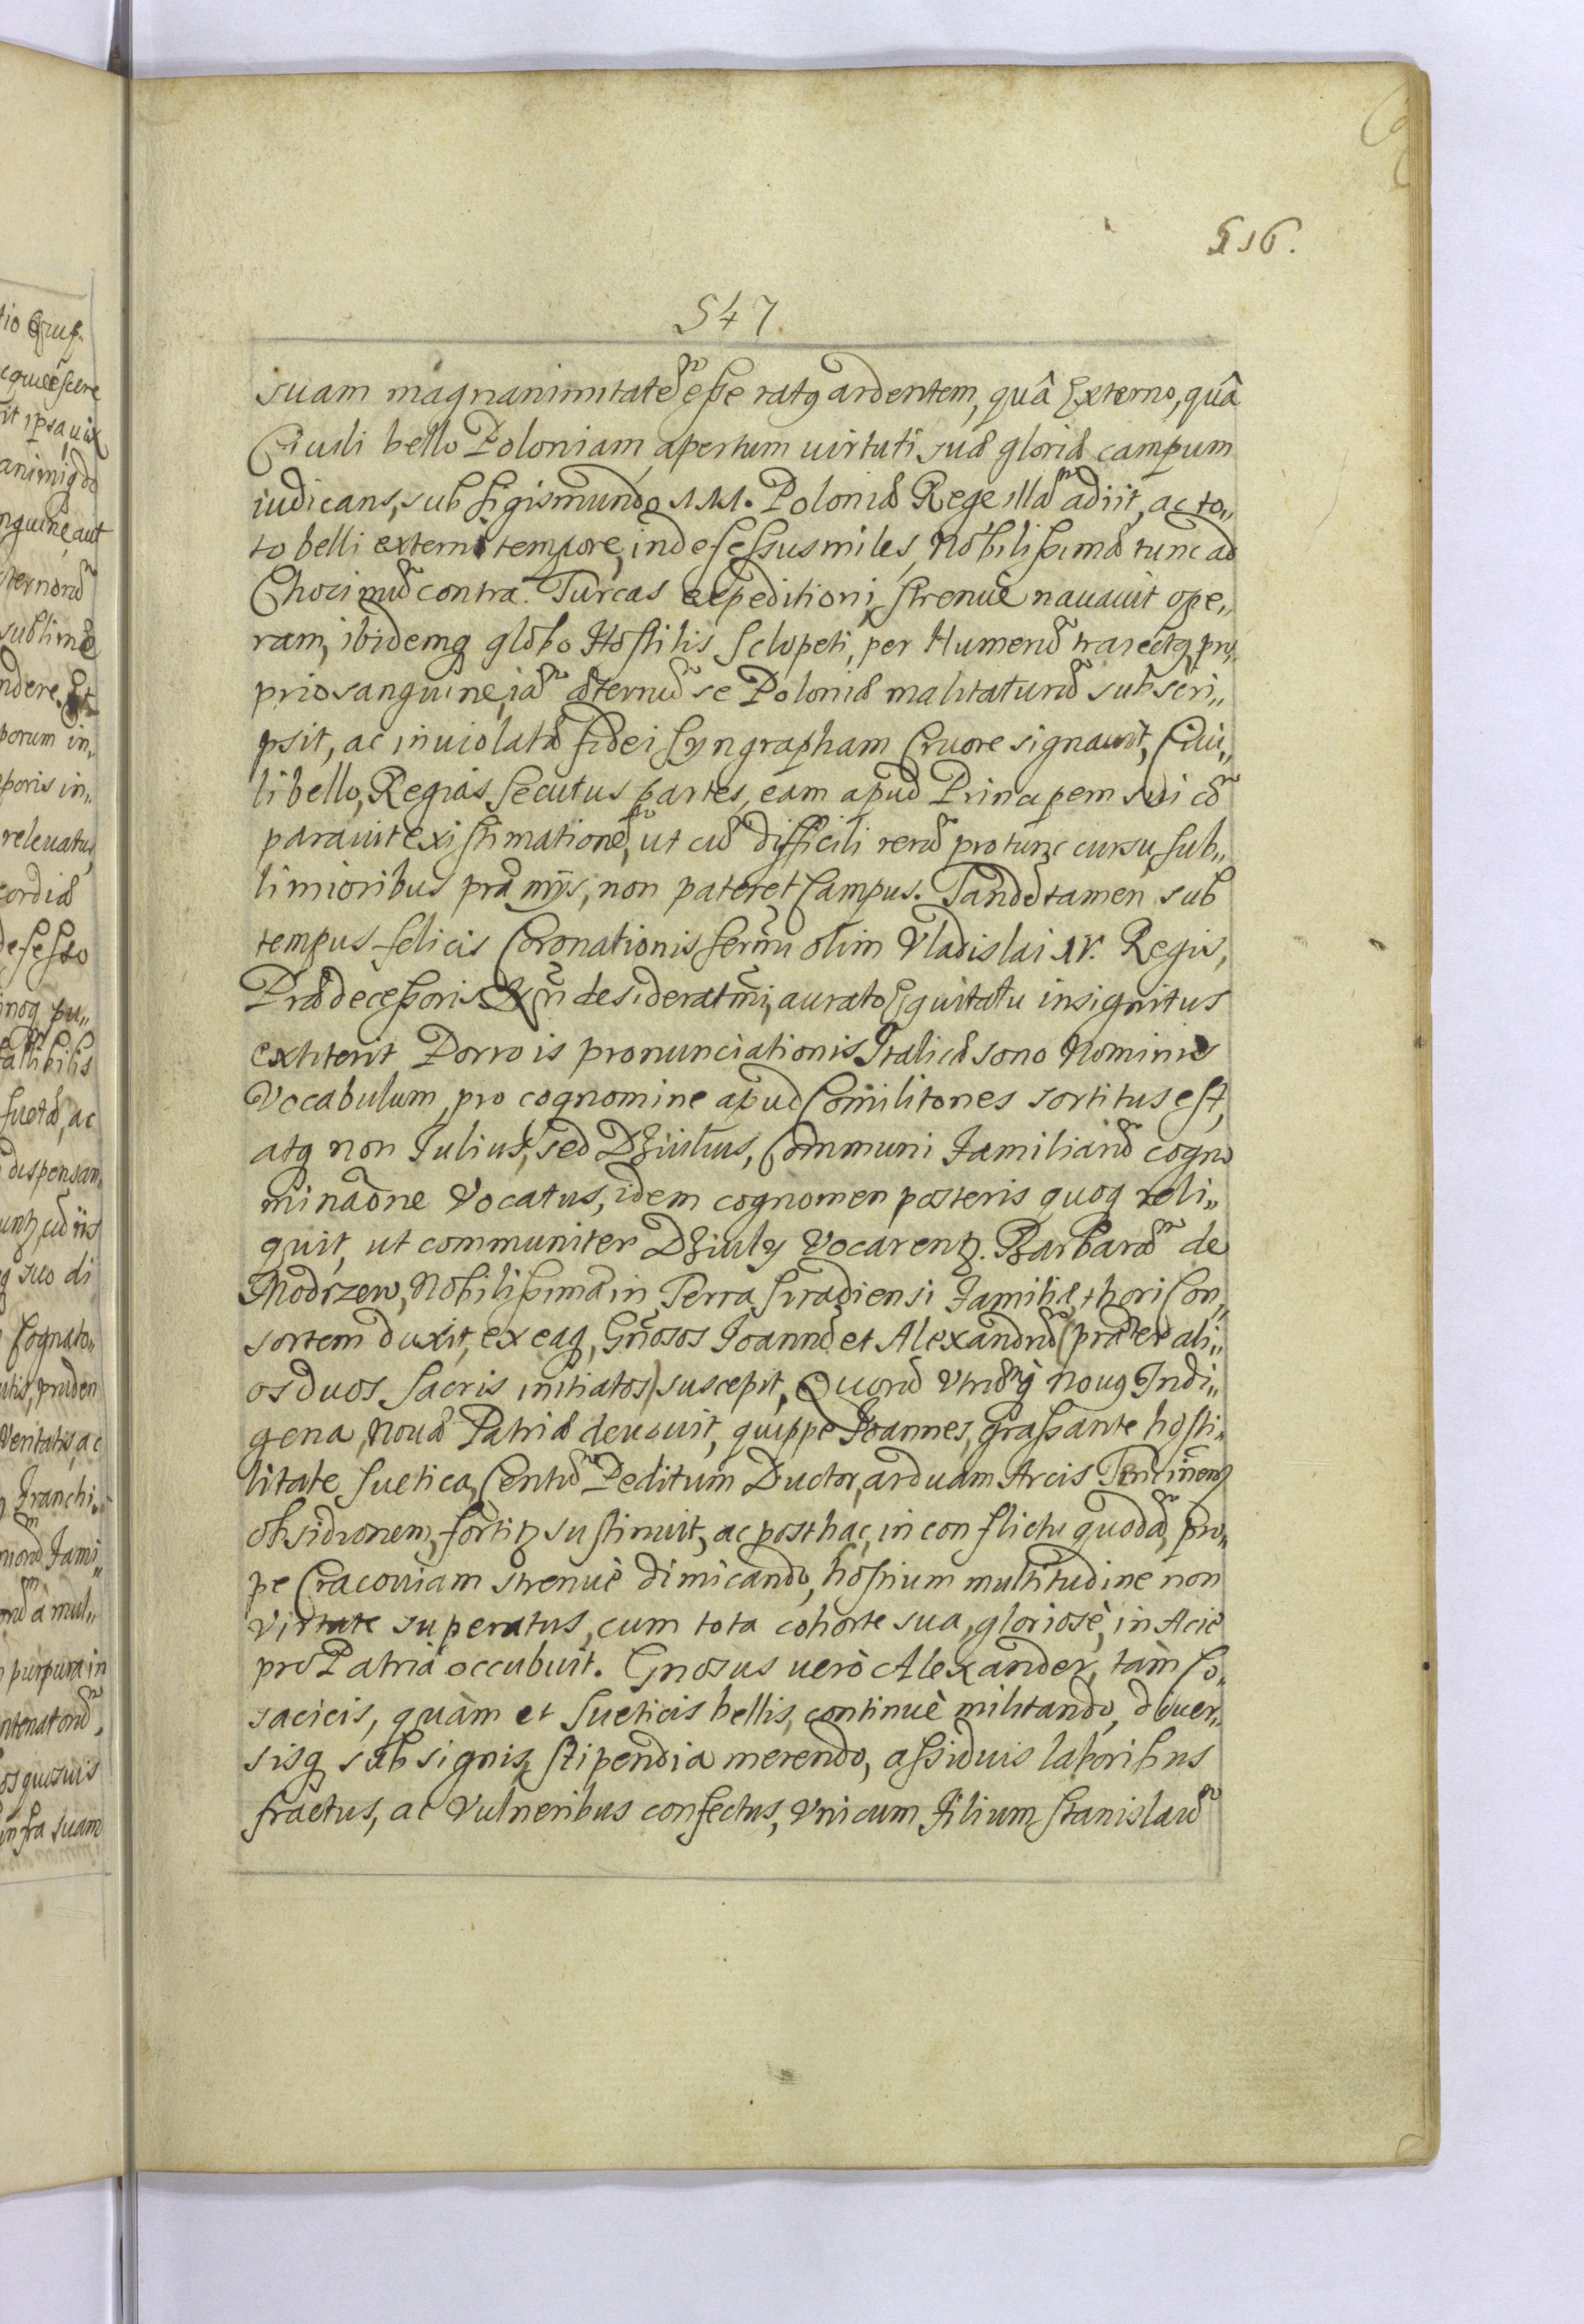 516.
547.
suam magnanimitatẽ esse ratq ardentem, quâ Externo, quâ
Ciuili bello Poloniam, apertum uirtuti suæ gloriæ campum
iudicans, sub Sigismundo III. Poloniæ Rege illã adiit, ac to„
to belli externi tempore, indefessus miles, Nobilissimæ tunc ad
Chocimũ contra Turcas expeditioni, strenuè nauauit ope„
ram, ibidemq globo Hostilis Sclopeti, per Humerũ traiectq, pro„
prio sanguine, iã æternũ se Poloniæ militaturũ subscri„
psit, ac inuiolatæ fidei Syngrapham Cruore signauit, Ciui„
li bello, Regias Secutus partes, eam apud Principem sui cõ
parauit existimationẽ, ut cũ difficili rerũ pro tunc cursu sub„
limioribus præmijs, non pateret Campus. Tandẽ tamen sub
tempus felicis Coronationis Serm̃i olim Vladislai IV. Regis,
Prædecessoris Nr̃i desideratm̃i, aurato Equitatu insignitus
extiterit Porro is pronunciationis Italicæ sono Nominis
Vocabulum, pro cognomine apud Com̃ilitones sortitus est,
atq non Iulius, sed Dziulius, Communi Familiarũ cogno
minaõne Vocatus, idem cognomen posteris quoq reli„
quit, ut communiter Dziuly Vocarent. Barbarã de
Modrzew, Nobilissimæ in Terra Siradiensi Familiæ, thori Con„
sortem duxit, ex eaq, Gñosos Ioannẽ et Alexandrũ (præter ali„
os duos Sacris initiatos) suscepit, Quorũ Vtrũq nouq Indi„
gena, Nouæ Patriæ deuouit, quippe Ioannes, grassante hosti„
litate Suetica, Centũ Peditum Ductor, arduam Arcis Tencinen
obsidionem, fortit sustinuit, ac posthac, in conflictu quodã, pro„
pe Cracouiam strenuè dimicando, hostium multitudine non
virtute superatus, cum tota cohorte sua, gloriosè, in Acie
pro Patria occubuit. Gnosus uerò Alexander, tàm Co„
sacicis, quàm et Sueticis bellis, continuè militando, diuer„
sisq sub signis, stipendia merendo, assiduis laboribus
fractus, ac Vulneribus confectus, Vnicum Filium Stanislaũ